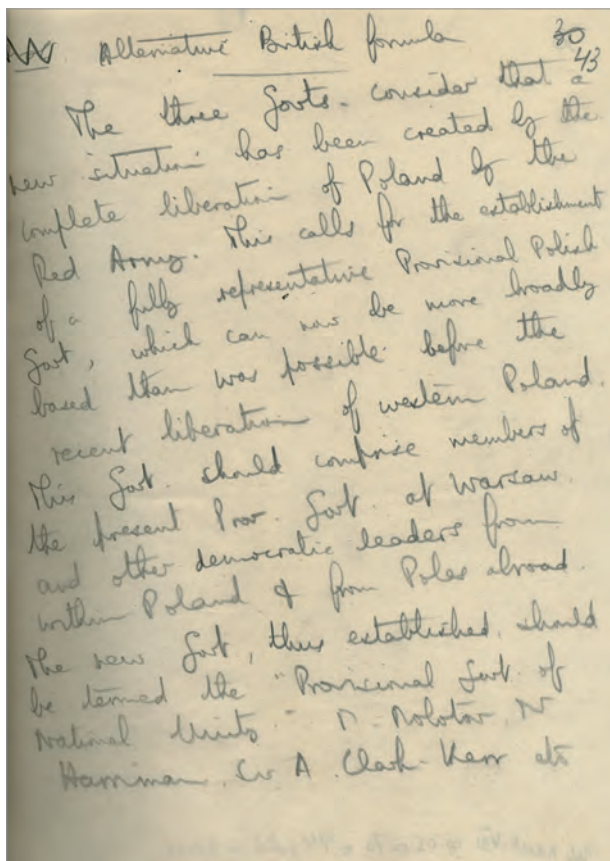 Alternative British formula 30
43
The three Govts. consider that a
new situation has been created by the
complete liberation of Poland by the
Red Army. This calls for the establishment
of a fully representative Provisional Polish
Govt, which can now be more broadly
based than was possible before the
recent liberation of western Poland.
This Govt. should comprise members of
the present Prov. Govt. at Warsaw.
and other democratic leaders from
within Poland & from Poles abroad.
The new Govt, thus established, should
be termed the "Provisional Govt. of
National Unity." M. Molotov, Mr
Harriman, Sir A. Clark-Kerr etc